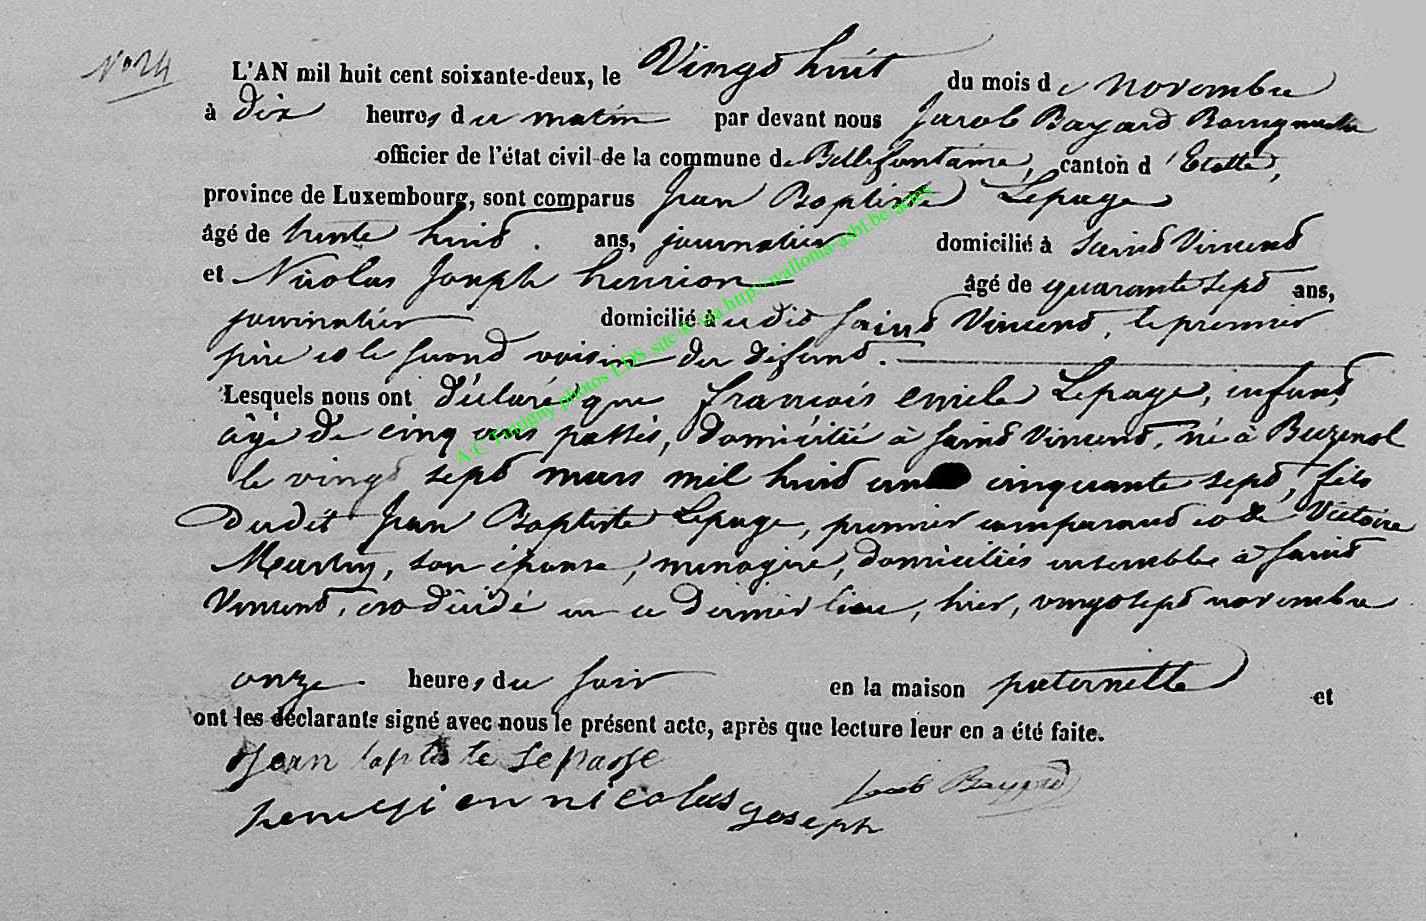 N° 24
L'AN mil huit cent soixante-deux, le Vingt huit du mois de novembre
à dix heures du matin par devant nous Jacob Bayard Bourgmestre
officier de l'état civil de la commune de Bellefontaine, canton d'Etalle,
province de Luxembourg, sont comparus Jean Baptiste Lepage
âgé de trente huit ans, journalier domicilié à Saint Vincent
et Nicolas Joseph henrion âgé de quarante sept ans,
journalier domicilié à u dit Saint Vincent, le premier
père et le second voisin du défunt.
Lesquels nous ont déclaré que francois emile Lepage, enfant,
âgé de cinq ans passés, domicilié à saint Vincent, né à Buzenol
le vingt sept mars mil huit cent cinquante sept, fils
dudit Jean Baptiste Lepage, premier comparant et de Victoire
son épouse, ménagère, domiciliés ensemble à saint
Vincent, est décédé en ce dernier lieu, hier, vingt sept novembre
onze heures du soir en la maison paternelle et
ont les déclarants signé avec nous le présent acte, après que lecture leur en a été faite.
Jean baptiste Lepage
henrion nicolas Joseph
Jacob Bayard
A.C Tintigny photos LDS site & via http://wallonia-asbl.be/actes